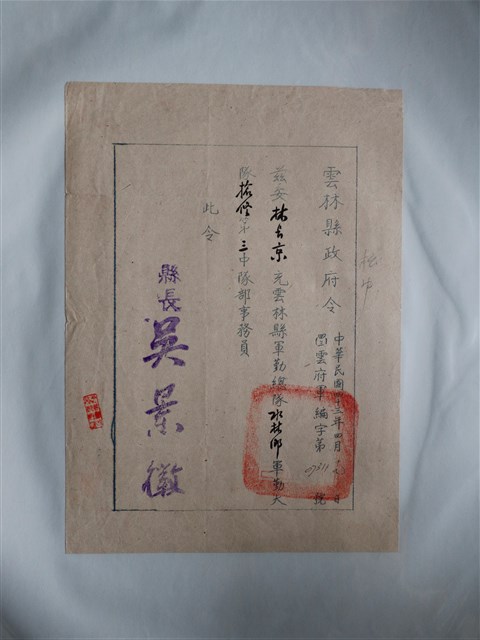 雲林縣政府令
中華民國四十三年四月 日
雲府軍編字第 號
茲委林長京充雲林縣軍勤總隊水林鄉軍勤大
隊搶修第三中隊部事務員
此令
縣長 吳景徽